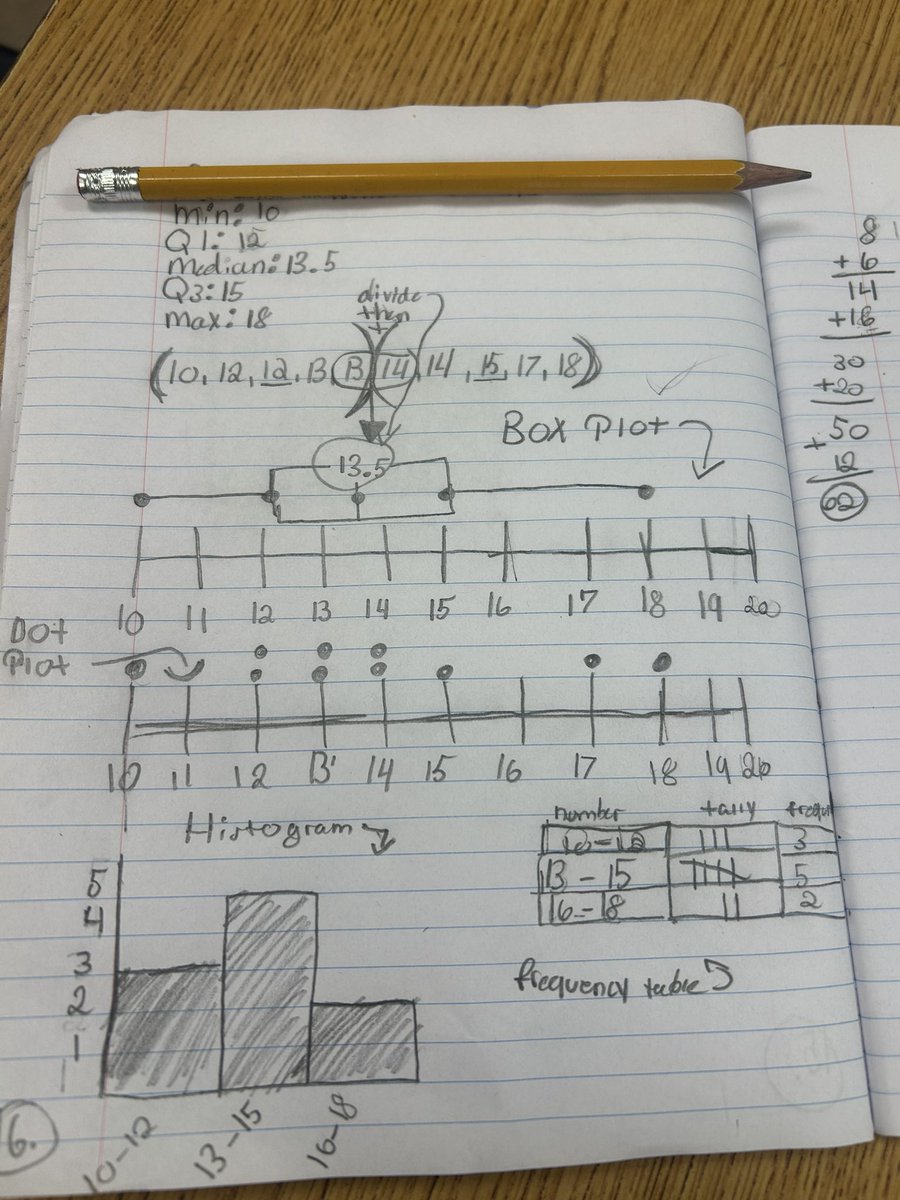 min: 10
Q1: 12
median: 13.5
Q3: 15
max: 18
divide
then
(10, 12, 12, 13, 13, 14, 14, 15, 17, 18)
Box Plot
13.5
10 11 12 13 14 15 16 17 18 19 20
Dot
Plot
10 11 12 13 14 15 16 17 18 19 20
Histogram
number tally frequ
10-12 ||| 3
13-15 5
16-18 || 2
frequency table
5
4
3
2
1
10-12 13-15 16-18
6.
8
+6
14
+16
30
+20
50
+
12
62